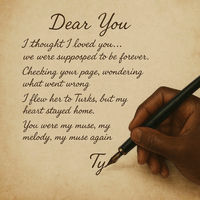 Dear You
I thought I loved you...
we were supposped to be forever.
Checking your page, wondering
what went wrong
I flew her to Turks, but my
heart stayed home.
You were my muse, my
melody, my muse again
Ty